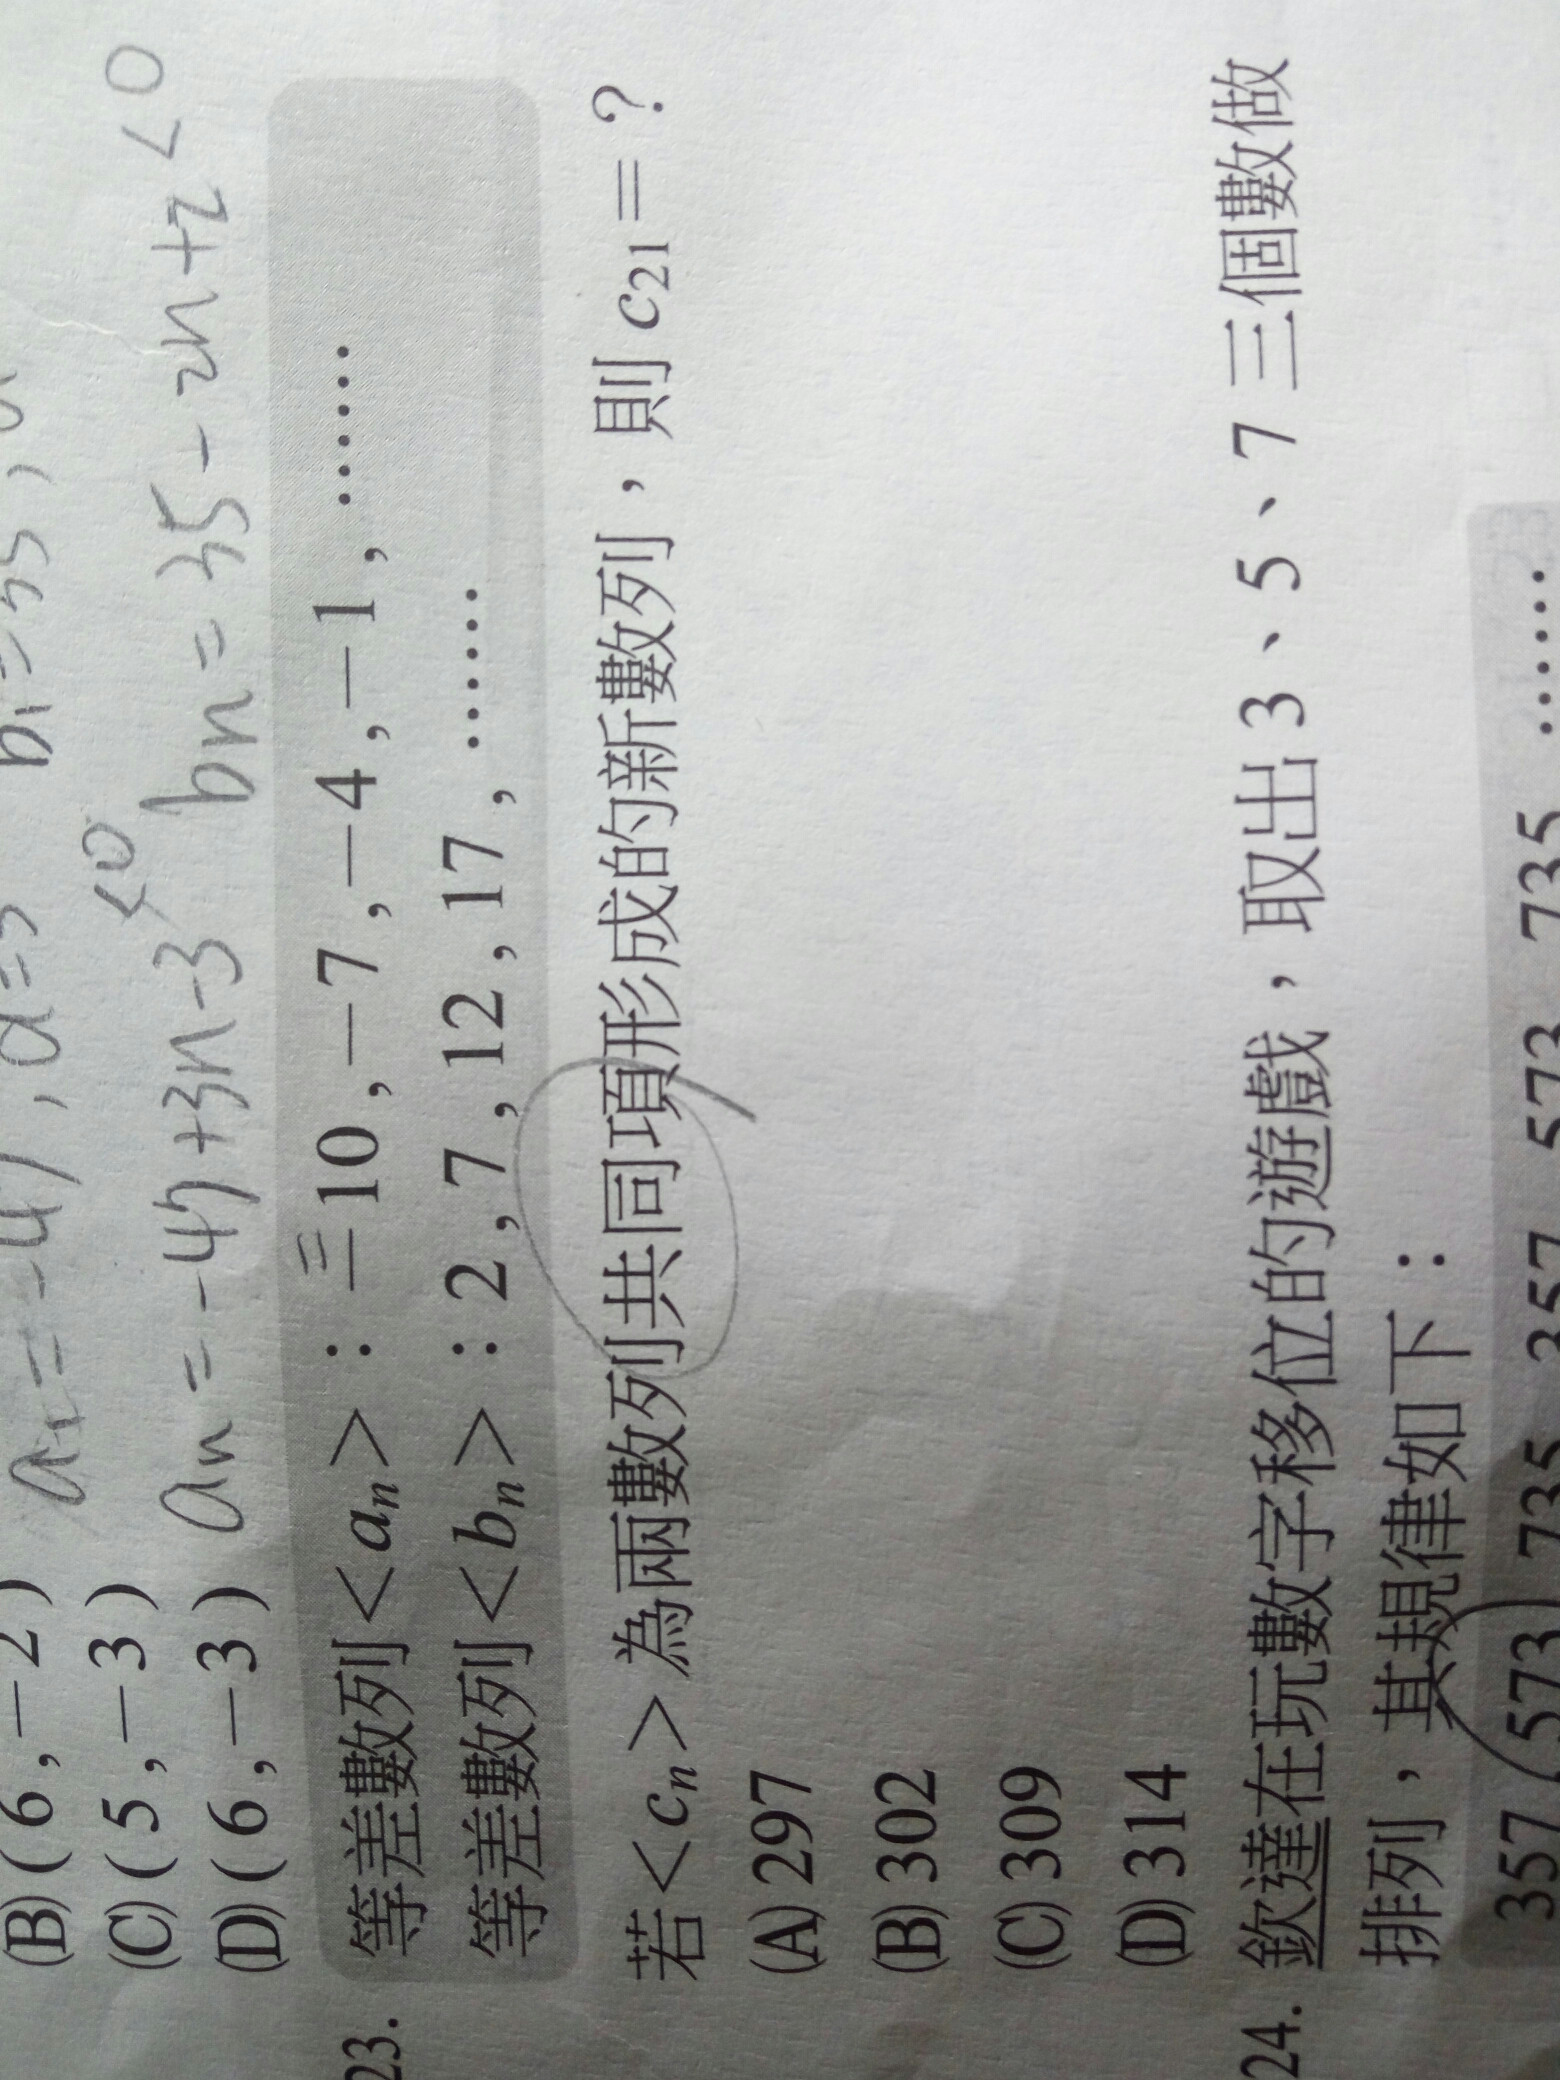 (B)(6,−2)
a₁=−47,d=3
(C)(5,−3)
<0
<0
(D)(6,−3)
an=−47+3n−3
bn=35−2n+2
23. 等差數列<aₙ>：−10,−7,−4,−1,……
等差數列<bₙ>：2,7,12,17,……
若<cₙ>為兩數列共同項形成的新數列，則c₂₁=？
(A) 297
(B) 302
(C) 309
(D) 314
24. 欽達在玩數字移位的遊戲，取出3、5、7三個數做
排列，其規律如下：
357 573 735 357 573 735 ……